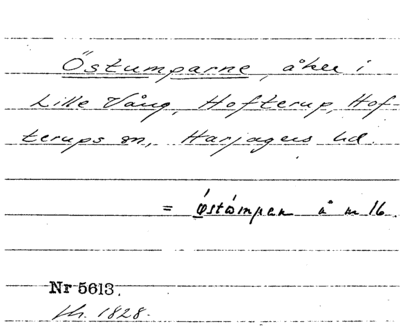 Östumparne, åker i
Lille Vång, Hofterup, Hof-
terups sn, Harjagers hd.
= Östompen å m 16.
Nr 5613.
1828.